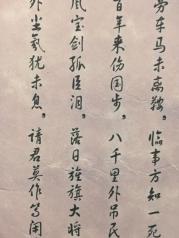 劳车马未离鞍，临事方知一死
百年来伤国步，八千里外吊民
风宝剑孤臣泪，落日旌旗大将
外尘氛犹未息，请君莫作等闲